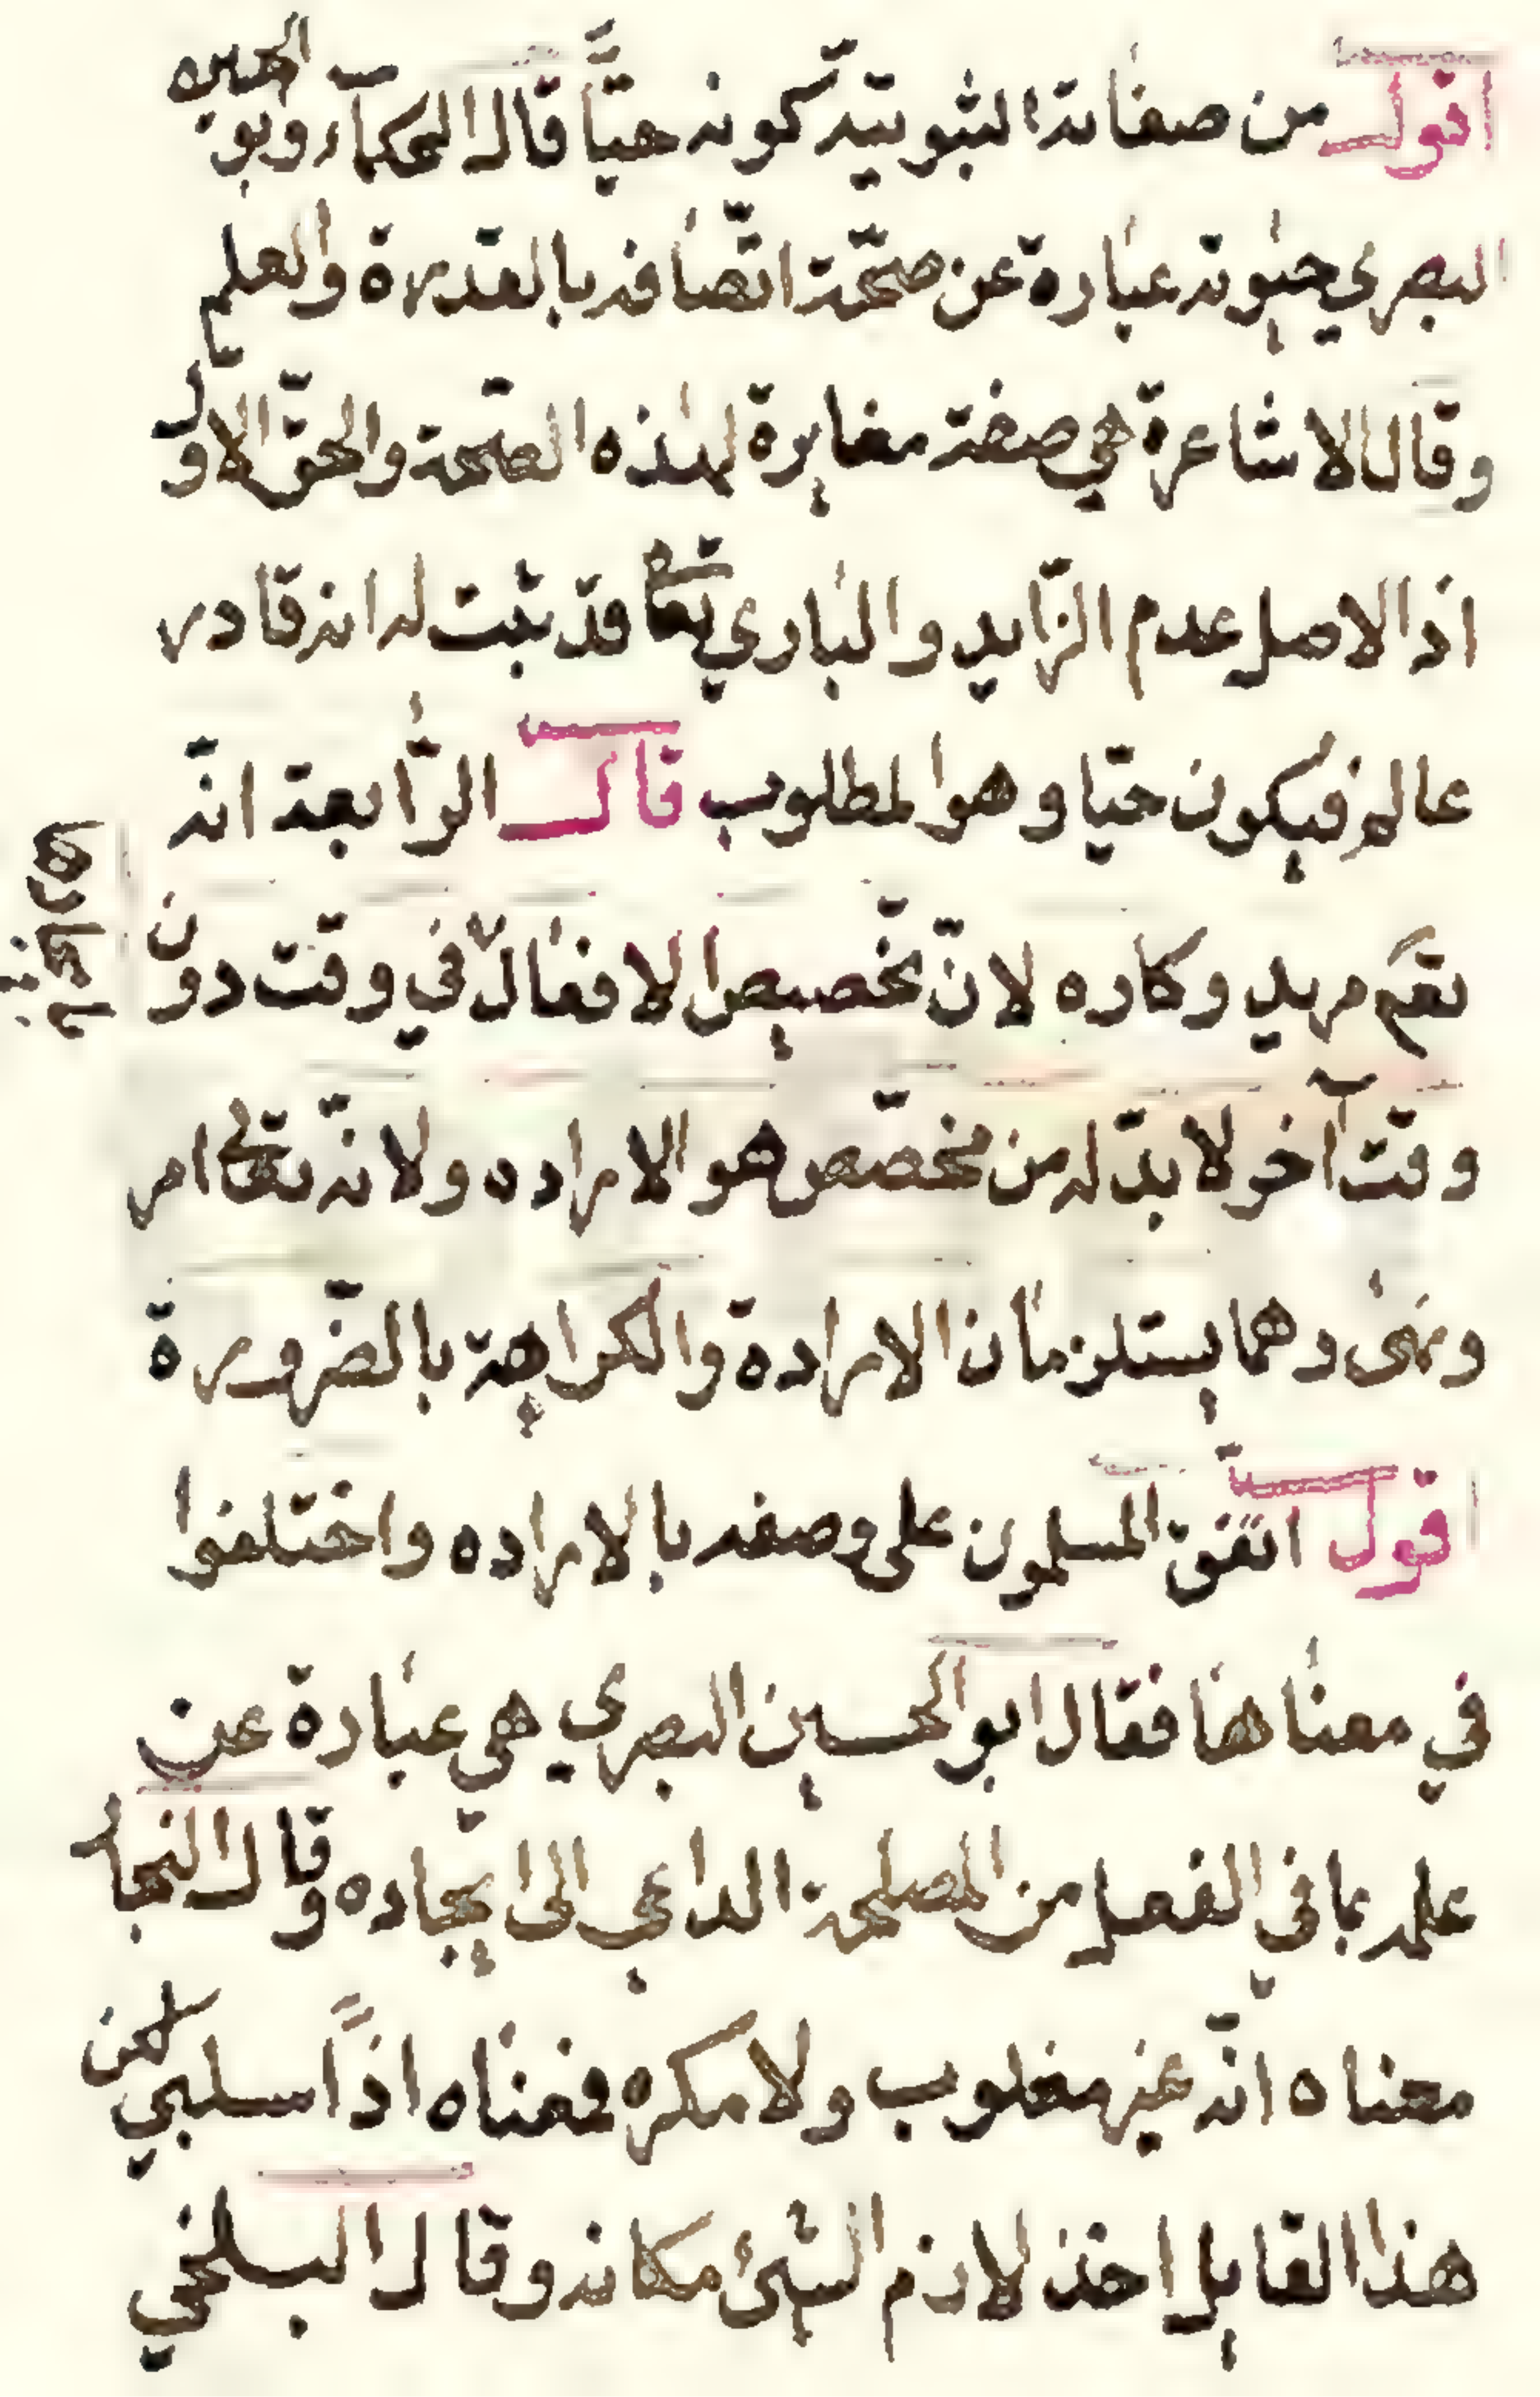 اقول من صفاته الثبوتية كونه حيًّا قال الحكمآء وابو الحسين
البصري حيٰوته عبارة عن صحّة اتّصافه بالقدرة والعلم
وقال الاشاعرة هي صفة مغايرة لهذه الصّحة والحقّ الاوّل
اذ الاصل عدم الزّايد والباري تعالى قد ثبت له انه قادر
عالم فيكون حيّا وهو المطلوب قال الرّابعة انّه
تعالى مريد وكاره لانّ تخصيص الافعال في وقت دون
وقت آخر لا بدّ له من مخصّص هو الاراده ولانّه تعالى امر
ونهى وهما يستلزمان الارادة والكراهة بالضّرورة
اقول اتّفق المسلمون على وصفه بالاراده واختلفوا
في معناها فقال ابو الحسين البصري هي عبارة عن
علمه بما في الفعل من المصلحة الداعي الى ايجاده وقال النجار
معناه انّه غير مغلوب ولا مكره فمعناه اذًا سلبي لكن
هذا القايل اخذ لازم الشيئ مكانه وقال البلخي
بايجادها